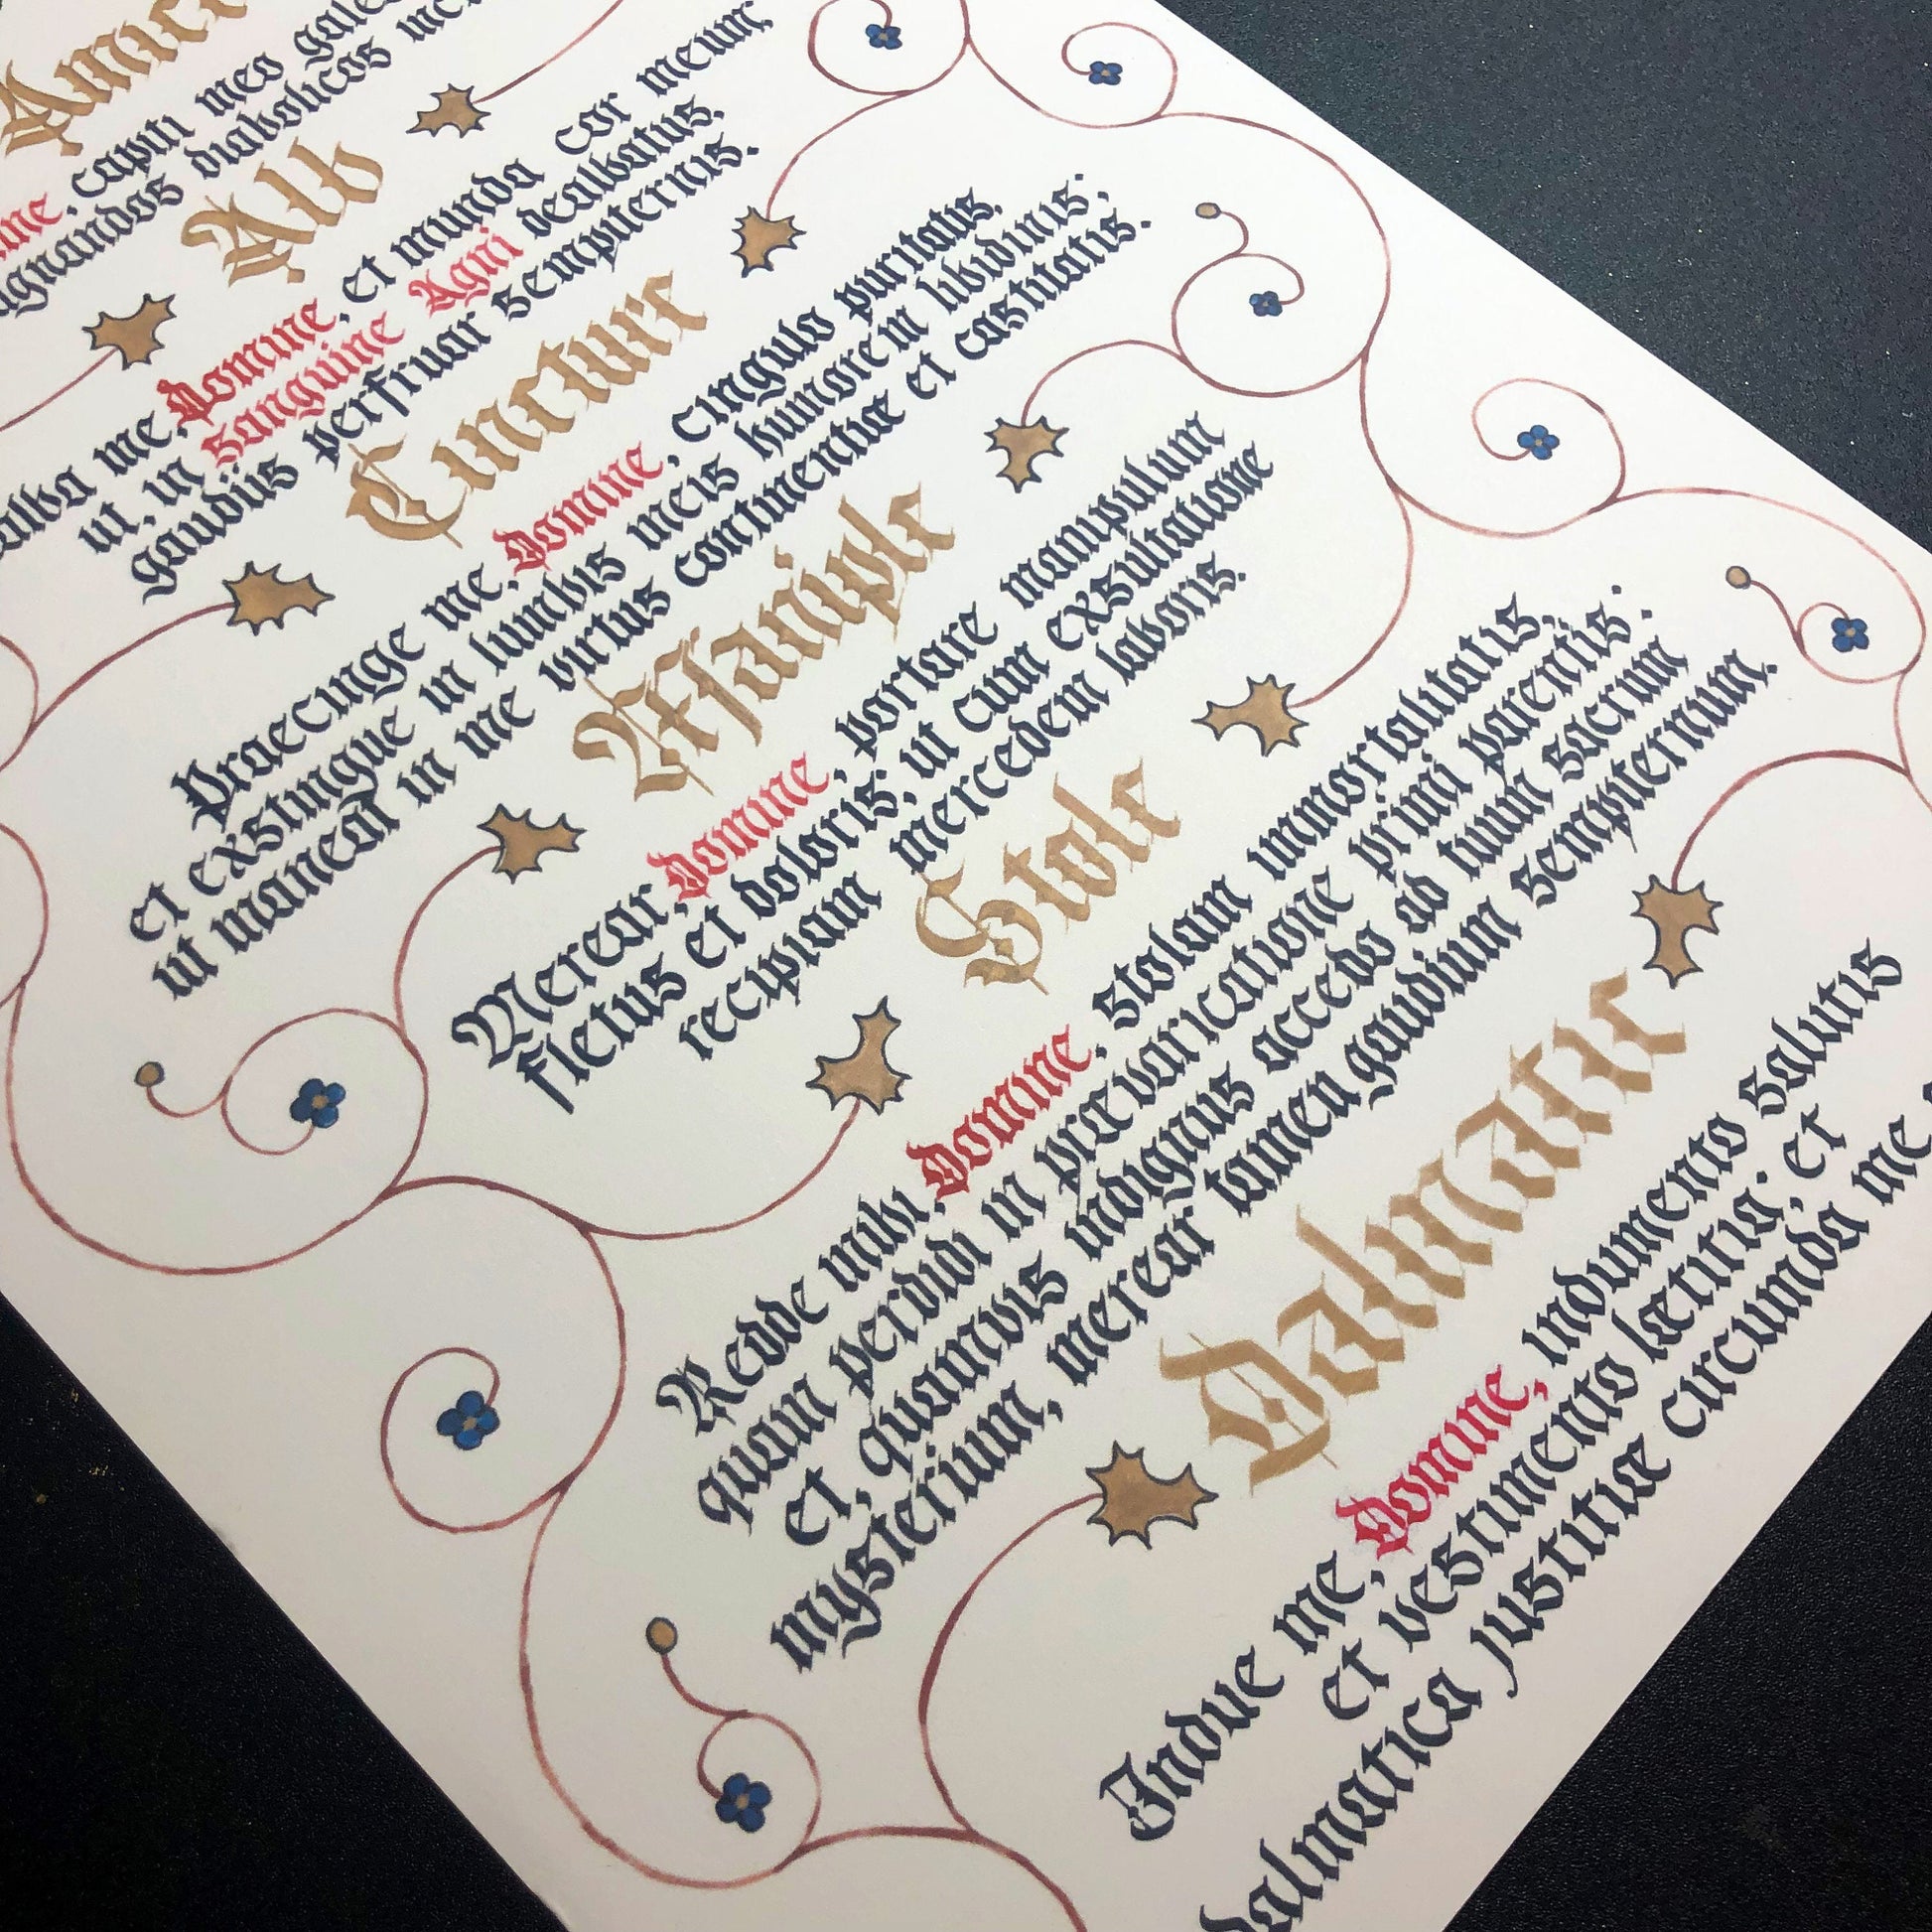 Amice
mine, capiti meo galea
ugnandos diabolicos inc
Alb
ealba me, Domine, et munda cor meum
ut, in sanguine Agni dealbatus,
gaudiis perfruar sempiternis.
Cincture
Praecinge me, Domine, cingulo puritatis,
et exstingue in lumbis meis humorem libidinis;
ut maneat in me virtus continentiæ et castitatis.
Maniple
Merear, Domine, portare manipulum
fletus et doloris; ut cum exsultatione
recipiam mercedem laboris.
Stole
Redde mihi, Domine, stolam immortalitatis,
quam perdidi in prævaricatione primi parentis:
et, quamvis indignus accedo ad tuum sacrum
mysterium, merear tamen gaudium sempiternum.
Dalmatic
Indue me, Domine, indumento salutis
et vestimento lætitia; et
dalmatica justitiæ circumda me